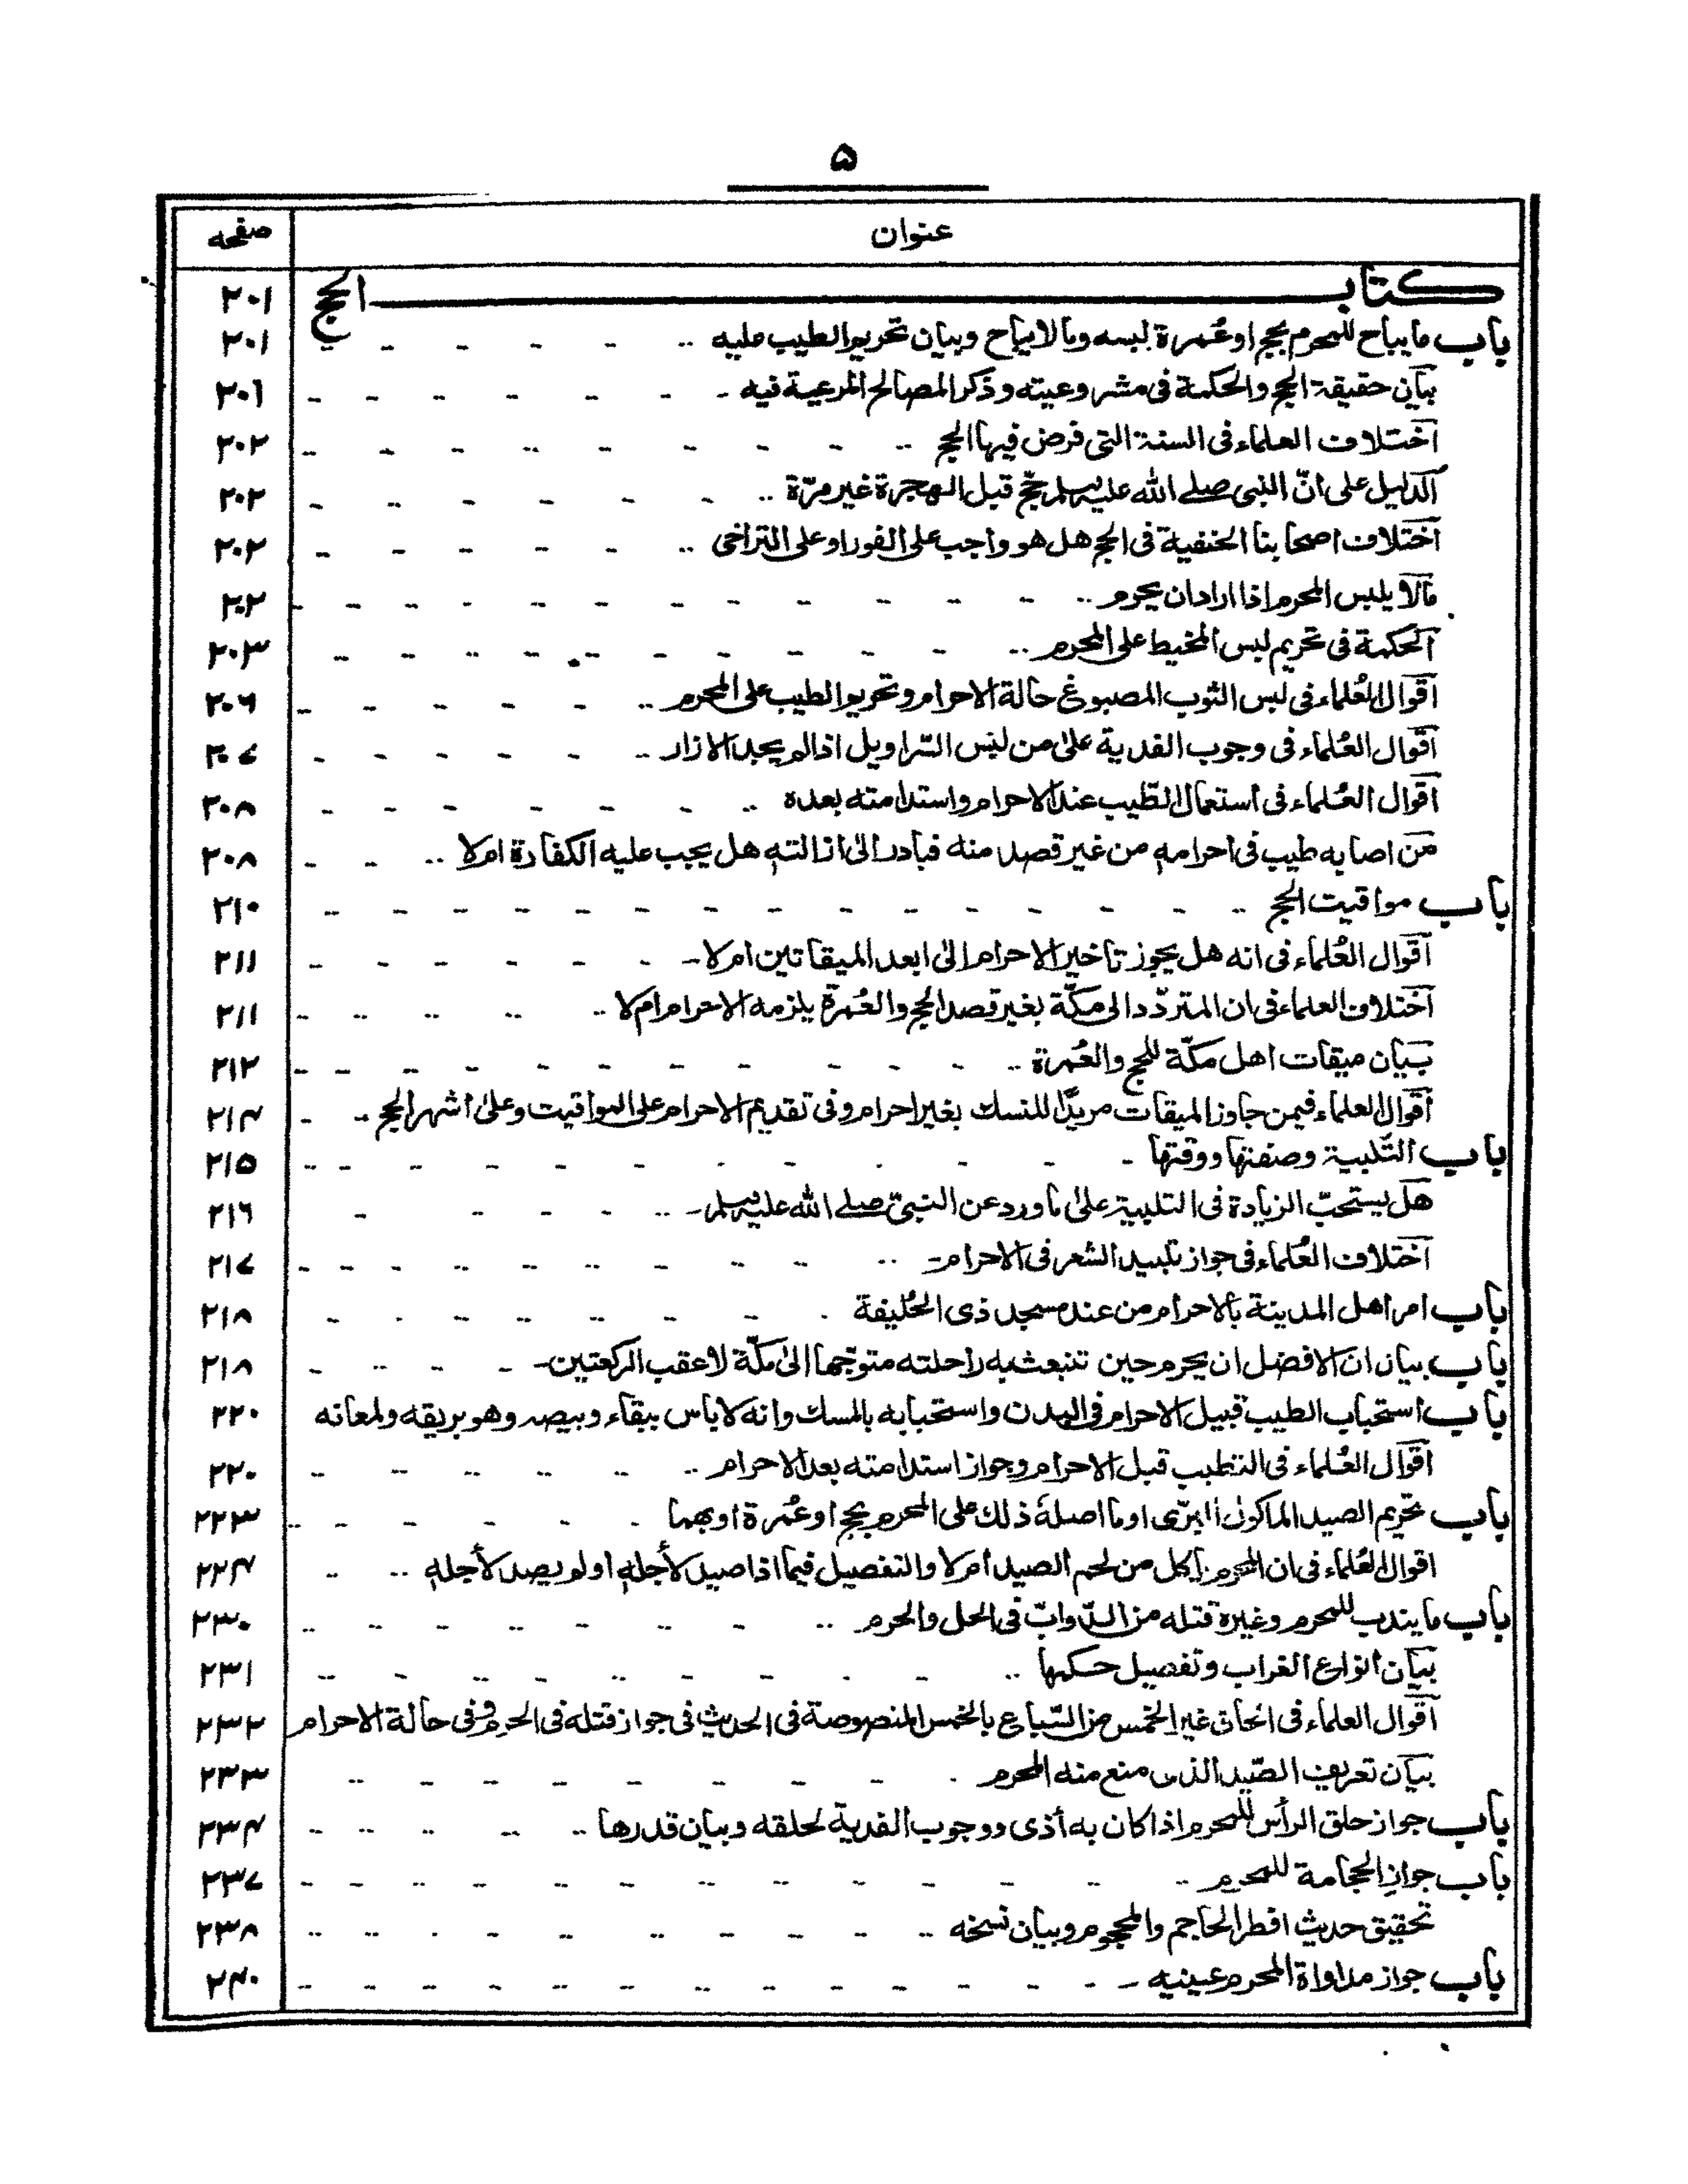 ۵
عنوان صفحه
كتاب الحج ۲۰۱
باب ما يباح للمحرم بحج او عُمرة لبسه وما لا يباح وبيان تحريم الطيب عليه ۲۰۱
بيان حقيقة الحج والحكمة فى مشروعيته وذكر المصالح المرعية فيه ۲۰۱
اختلاف العلماء فى السنة التى فرض فيها الحج ۲۰۲
الدليل على انّ النبى صلى الله عليه وسلم حجّ قبل الهجرة غير مرّة ۲۰۲
اختلاف اصحابنا الحنفية فى الحج هل هو واجب على الفور او على التراخى ۲۰۲
ما لا يلبس المحرم اذا اراد ان يحرم ۲۰۲
الحكمة فى تحريم لبس المخيط على المحرم ۲۰۳
اقوال العُلماء فى لبس الثوب المصبوغ حالة الاحرام وتحريم الطيب على المحرم ۲۰۶
اقوال العُلماء فى وجوب الفدية على من لبس السّراويل اذا لم يجد الازار ۲۰۷
اقوال العُلماء فى استعمال الطّيب عند الاحرام واستدامته بعده ۲۰۸
من اصابه طيب فى احرامه من غير قصد منه فبادر الى ازالته هل يجب عليه الكفارة ام لا ۲۰۸
باب مواقيت الحج ۲۱۰
اقوال العُلماء فى انه هل يجوز تاخير الاحرام الى ابعد الميقاتين ام لا ۲۱۱
اختلاف العلماء فى ان المتردّد الى مكّة بغير قصد الحج والعُمرة يلزمه الاحرام ام لا ۲۱۱
بيان ميقات اهل مكّة للحج والعُمرة ۲۱۲
اقوال العلماء فيمن جاوز الميقات مريدًا للنسك بغير احرام وفى تقديم الاحرام على المواقيت وعلى اشهر الحج ۲۱۴
باب التّلبية وصفتها ووقتها ۲۱۵
هل يستحبّ الزيادة فى التلبية على ما ورد عن النبىّ صلى الله عليه وسلم ۲۱۶
اختلاف العُلماء فى جواز تلبيد الشعر فى الاحرام ۲۱۷
باب امر اهل المدينة بالاحرام من عند مسجد ذى الحُليفة ۲۱۸
باب بيان ان الافضل ان يحرم حين تنبعث به راحلته متوجّها الى مكّة لا عقب الركعتين ۲۱۸
باب استحباب الطيب قبيل الاحرام فى البدن واستحبابه بالمسك وانه لا باس ببقاء وبيصه وهو بريقه ولمعانه ۲۲۰
اقوال العُلماء فى التطيب قبل الاحرام وجواز استدامته بعد الاحرام ۲۲۰
باب تحريم الصيد الماكول البرّى او ما اصله ذلك على المحرم بحج او عُمرة او بهما ۲۲۳
اقوال العُلماء فى ان المحرم ياكل من لحم الصيد ام لا والتفصيل فيما اذا صيد لأجله او لم يصد لأجله ۲۲۴
باب ما يندب للمحرم وغيره قتله من الدّوابّ فى الحل والحرم ۲۳۰
بيان انواع الغراب وتفصيل حكمها ۲۳۱
اقوال العلماء فى الحاق غير الخمس من السّباع بالخمس المنصوصة فى الحديث فى جواز قتله فى الحرم وفى حالة الاحرام ۲۳۲
بيان تعريف الصّيد الذى منع منه المحرم ۲۳۳
باب جواز حلق الرأس للمحرم اذا كان به أذى ووجوب الفدية لحلقه وبيان قدرها ۲۳۴
باب جواز الحجامة للمحرم ۲۳۷
تحقيق حديث افطر الحاجم والمحجوم وبيان نسخه ۲۳۸
باب جواز مداواة المحرم عينيه ۲۴۰